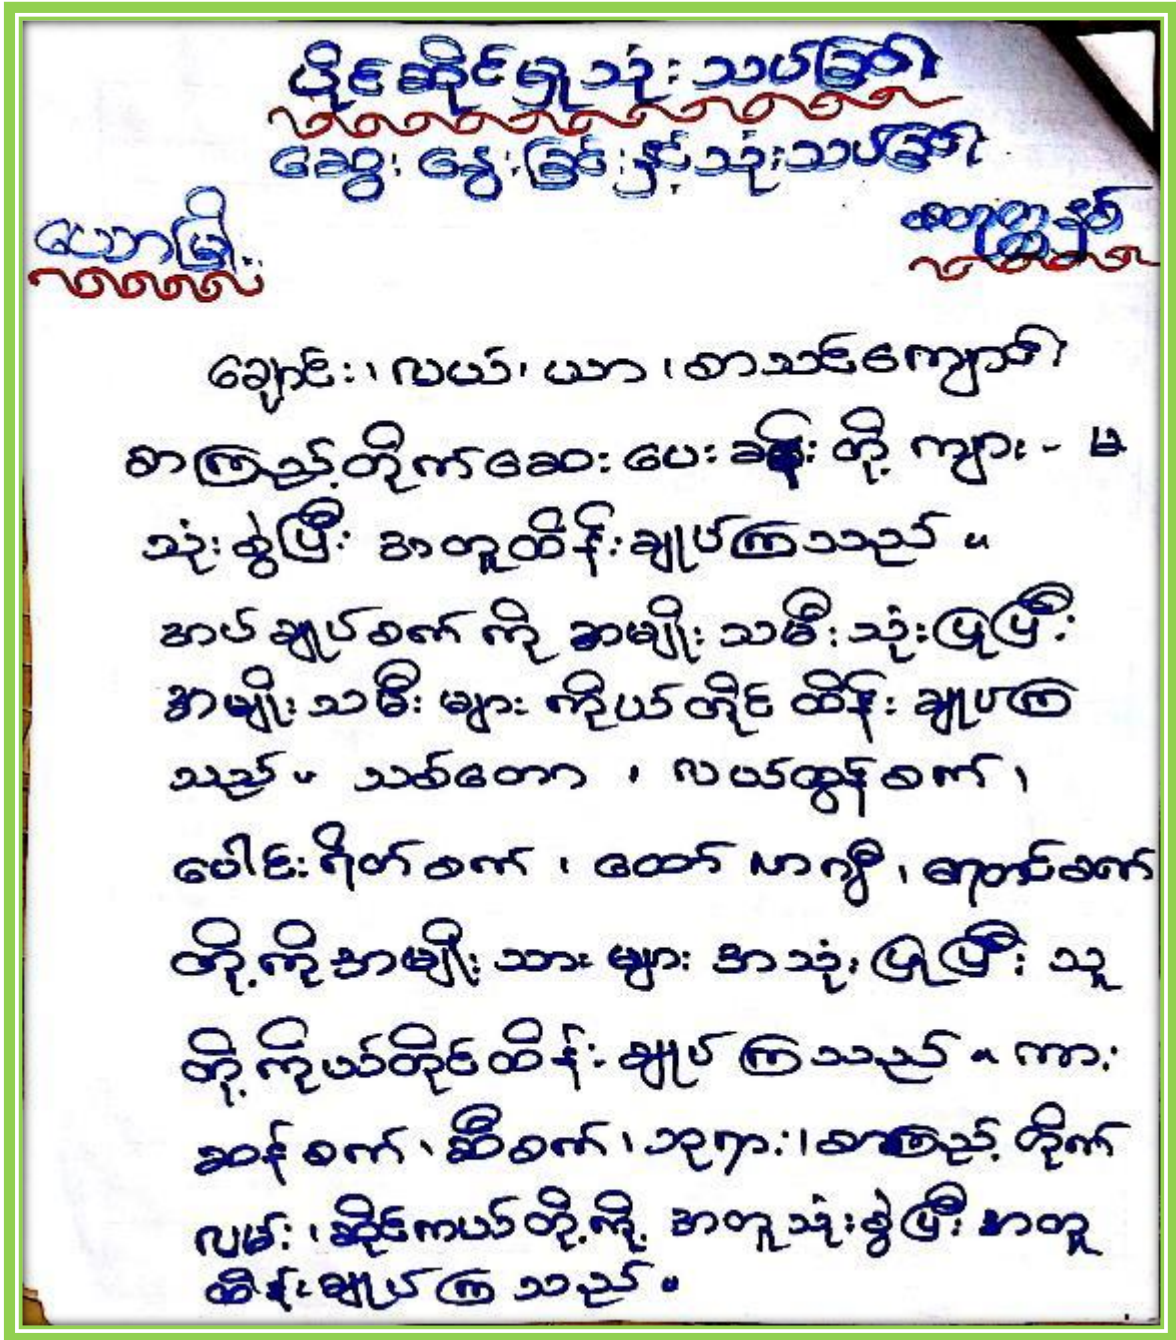 ပိုင်ဆိုင်ရှုသုံးသပ်ခြင်း
ဆွေးနွေးခြင်းနှင့်သုံးသပ်ခြင်း
ယောမြို့
ချောင်း၊ လယ်၊ ယာ၊ စာသင်ကျောင်း
စာကြည့်တိုက်ဆေးပေးခန်းတို့ ကျား - မ
သုံးစွဲပြီး အတူထိန်းချုပ်ကြသည်။
အပ်ချုပ်စက်ကို အမျိုးသမီးသုံးပြုပြီး
အမျိုးသမီးများ ကိုယ်တိုင် ထိန်းချုပ်ကြ
သည်။ သစ်တော၊ လယ်ထွန်စက်၊
ပေါင်းရိတ်စက်၊ ထော်လာဂျီ၊
တို့ကိုအမျိုးသားများ အသုံးပြုပြီး သူ
တို့ကိုယ်တိုင်ထိန်းချုပ်ကြသည်။ ကား
ဆန်စက်၊ ဆီစက်၊ ဘုရား၊ စာကြည့်တိုက်
လမ်း၊ ဆိုင်ကယ်တို့ကို အတူသုံးစွဲပြီး အတူ
ထိန်းချုပ်ကြသည်။